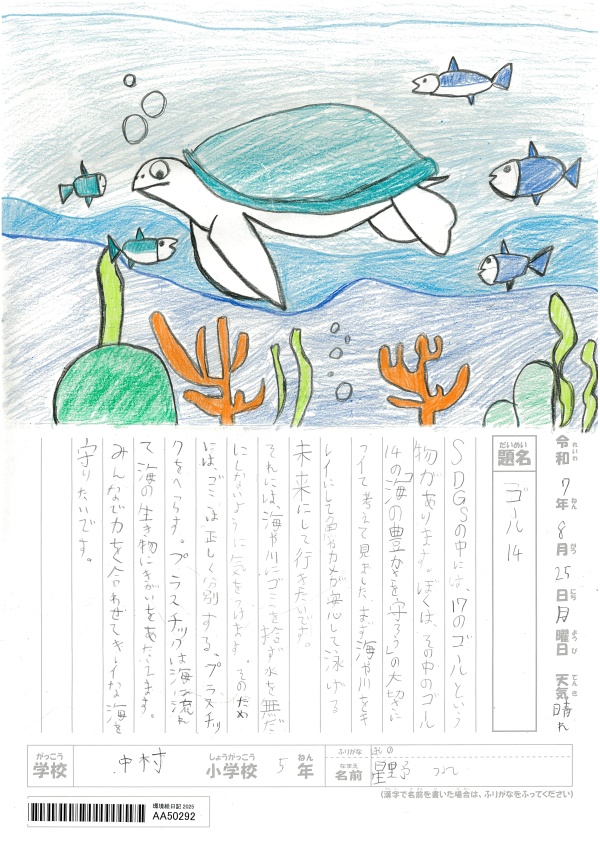 令和7年8月25日月曜日 天気 晴れ
れいわ ねん がつ にち ようび てんき
だいめい
題名 ゴール14
SDGSの中には、17のゴールという
物があります。ぼくは、その中のゴール
14の「海の豊かさを守ろう」の大切さに
ついて考えて見ました。まず海や川をキ
レイにして魚やカメが安心して泳げる
未来にして行きたいです。
それには、海や川にゴミを捨ず水を無だ
にしないように気をつけます。そのため
にはゴミは正しく分別する、プラスチッ
クをへらす。プラスチックは海に流れ
て海の生き物にきがいをあたえます。
みんなで力を合わせてキレイな海を
守りたいです。
がっこう しょうがっこう ねん
学校 中村 小学校 5年
ふりがな ほしの
なまえ
名前 星野
(漢字で名前を書いた場合は、ふりがなをふってください)
環境絵日記 2025
AA50292